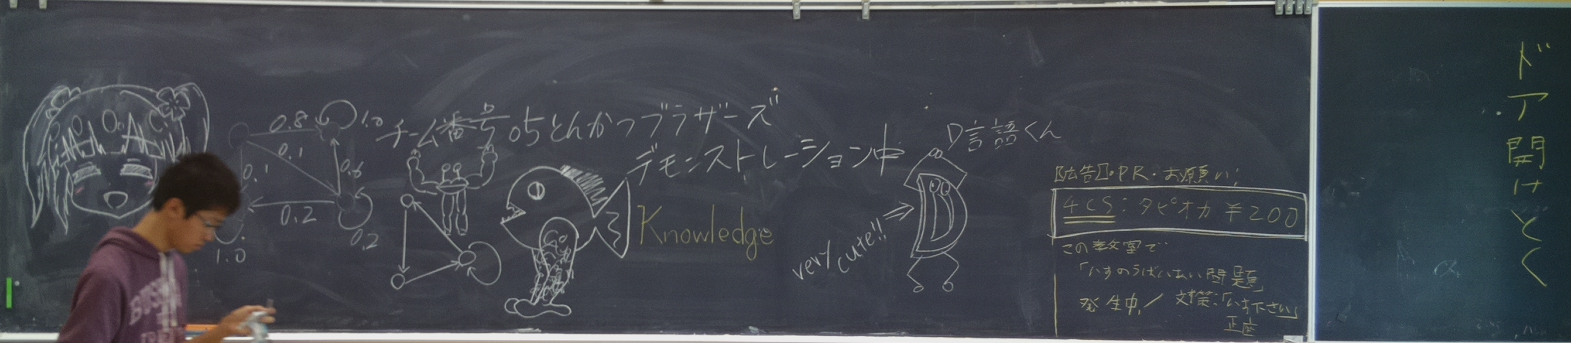 0.8
1.0
0.1
0.1
0.6
0.2
0.2
1.0
チーム番号05とんかつブラザーズ
デモンストレーション中
Knowledge
D言語くん
very cute!!
【広告】・PR・お願い!
4CS:タピオカ ¥200
この教室で
「いすのうばいあい問題
発生中!
対策:「いす下さい」
正座
ドア開けとく
BUS